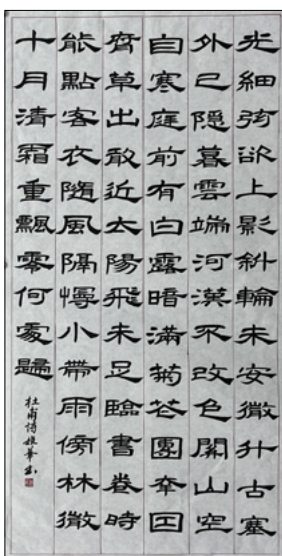 光細弦欲上影斜輪未安微升古塞
外已隱暮雲端河漢不改色關山空
自寒庭前有白露暗滿菊花團幸因
腐草出敢近太陽飛未足臨書卷時
能點客衣隨風隔幔小帶雨傍林微
十月清霜重飄零何處歸
杜甫詩